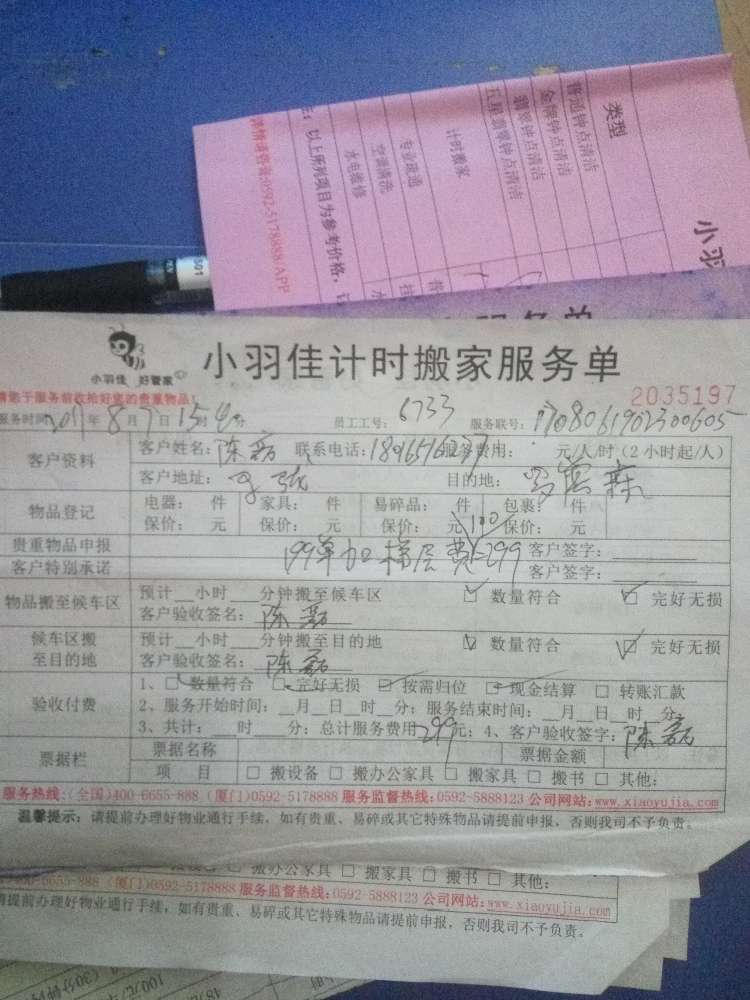 类型
普通钟点清洁
金牌钟点清洁
翡翠钟点清洁
五星翡翠钟点清洁
计时搬家
专业疏通
空调清洗
水电维修
以上所列项目为参考价格，
详情请咨询:0592-5178888/APP
小羽
小羽佳 好管家
小羽佳计时搬家服务单
请您于服务前收拾好您的贵重物品！
2035197
服务时间 2017年8月7日15时4分 员工工号：6733 服务联号：
客户资料
客户姓名：陈磊 联系电话： 服务费用： 元/人/时（2小时起/人）
客户地址： 目的地：
物品登记
电器： 件 家具： 件 易碎品： 件 包裹： 件
保价： 元 保价： 元 保价： 元 100 保价： 元
贵重物品申报 客户签字：
客户特别承诺 199单加楼层费=299 客户签字：
物品搬至候车区
预计__小时___分钟搬至候车区 ☑ 数量符合 ☑ 完好无损
客户验收签名：陈磊
候车区搬至目的地
预计__小时___分钟搬至目的地 ☑ 数量符合 ☑ 完好无损
客户验收签名：陈磊
验收付费
1、☑ 数量符合 ☑ 完好无损 ☑ 按需归位 ☑ 现金结算 □ 转账汇款
2、服务开始时间：__月__日__时__分；服务结束时间：__月__日__时__分；
3、共计：___时___分；总计服务费用299元；4、客户验收签字：陈磊
票据栏
票据名称 票据金额
项 目 □ 搬设备 □ 搬办公家具 □ 搬家具 □ 搬书 □ 其他：
服务热线：(全国)400-6655-888 (厦门)0592-5178888 服务监督热线：0592-5888123 公司网站：www.xiaoyujia.com
温馨提示：请提前办理好物业通行手续，如有贵重、易碎或其它特殊物品请提前申报，否则我司不予负责。
搬办公家具 □ 搬家具 □ 搬书 □ 其他：
00-6655-888 (厦门)0592-5178888 服务监督热线：0592-5888123 公司网站：www.xiaoyujia.com
请提前办理好物业通行手续，如有贵重、易碎或其它特殊物品请提前申报，否则我司不予负责。